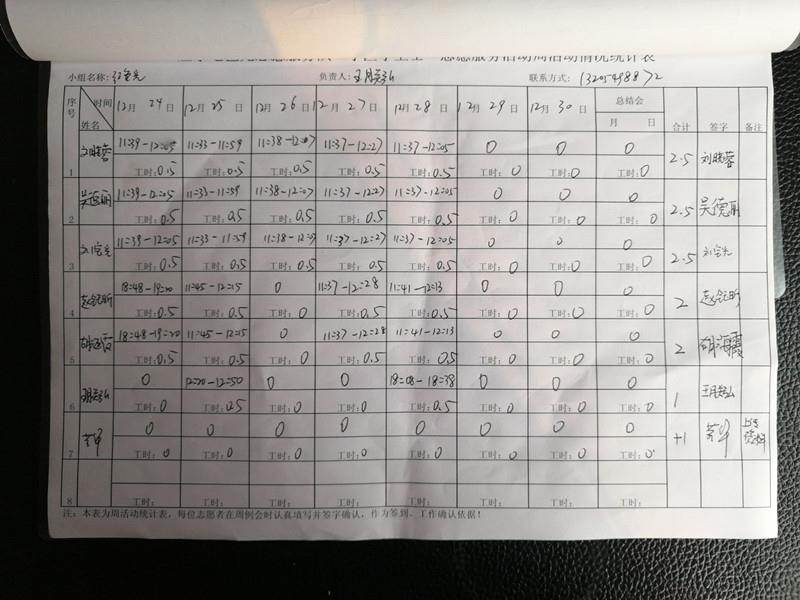 志愿服务活动周活动情况统计表
小组名称： 负责人： 联系方式：
序号 时间 姓名 12月24日 12月25日 12月26日 12月27日 12月28日 12月29日 12月30日 总结会 月 日 合计 签字 备注
11:39-12:05 11:33-11:59 11:38-12:07 11:37-12:27 11:37-12:05 0 0 0
1 刘晓蓉 工时:0.5 工时:0.5 工时:0.5 工时:0.5 工时:0.5 工时:0 工时:0 工时:0 2.5 刘晓蓉
11:39-12:05 11:33-11:59 11:38-12:07 11:37-12:27 11:37-12:05 0 0 0
2 吴德丽 工时:0.5 工时:0.5 工时:0.5 工时:0.5 工时:0.5 工时:0 工时:0 工时:0 2.5 吴德丽
11:39-12:05 11:33-11:59 11:38-12:07 11:37-12:27 11:37-12:05 0 0 0
3 工时:0.5 工时:0.5 工时:0.5 工时:0.5 工时:0.5 工时:0 工时:0 工时:0 2.5
18:48-19:20 11:45-12:15 0 11:37-12:28 11:41-12:13 0 0 0
4 工时:0.5 工时:0.5 工时:0 工时:0.5 工时:0.5 工时:0 工时:0 工时:0 2
18:48-19:20 11:45-12:15 0 11:37-12:28 11:41-12:13 0 0 0
5 胡海霞 工时:0.5 工时:0.5 工时:0 工时:0.5 工时:0.5 工时:0 工时:0 工时:0 2 胡海霞
0 12:20-12:50 0 0 18:08-18:38 0 0 0
6 工时:0 工时:0.5 工时:0 工时:0 工时:0.5 工时:0 工时:0 工时:0 1
0 0 0 0 0 0 0 0
7 工时:0 工时:0 工时:0 工时:0 工时:0 工时:0 工时:0 工时:0 +1
8 工时: 工时: 工时: 工时: 工时: 工时: 工时: 工时:
注：本表为周活动统计表，每位志愿者在周例会时认真填写并签字确认，作为签到、工作确认依据！